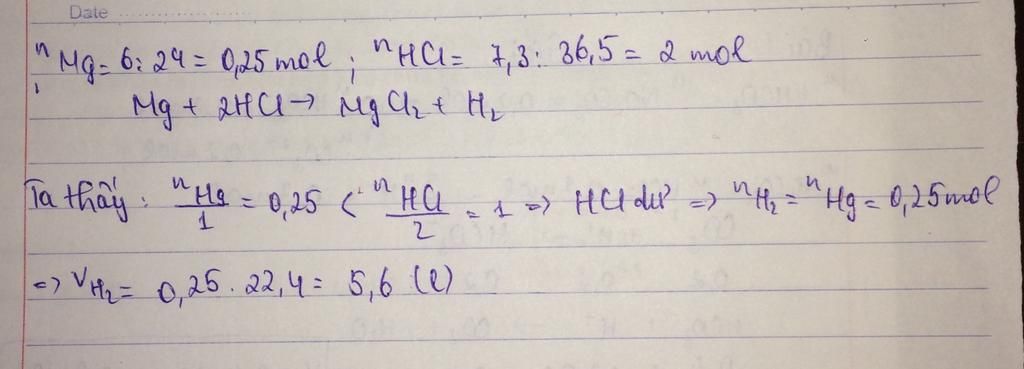 Date
nMg = 6 : 24 = 0,25 mol ; nHCl = 7,3 : 36,5 = 2 mol
Mg + 2HCl → MgCl₂ + H₂
Ta thấy : nMg/1 = 0,25 < nHCl/2 = 1 => HCl dư => nH₂ = nMg = 0,25 mol
=> VH₂ = 0,25 . 22,4 = 5,6 (l)